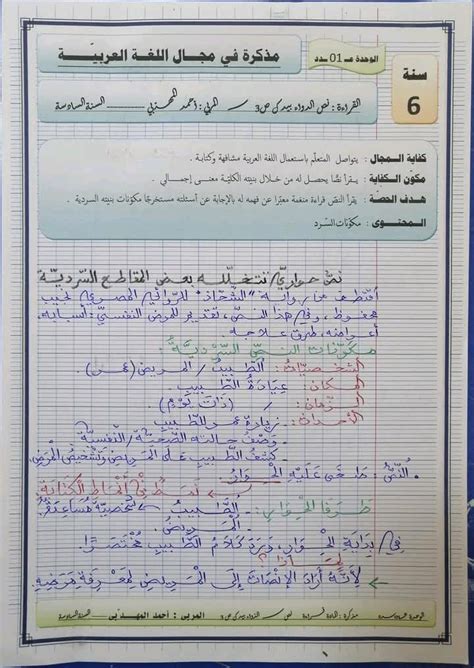 مذكرة في مجال اللغة العربيّة
الوحدة عـ 01ـدد
سنة
6
القراءة : نص الدواء بيدك ص3 المربي : أحمد المهذبي السنة السادسة
كفاية المجال : يتواصل المتعلّم باستعمال اللغة العربية مشافهة وكتابة.
مكوّن الكفاية : يقرأ نصًا يحصل له من خلال بنيته الكليّة معنى إجمالي.
هدف الحصّة : يقرأ النصّ قراءة منغمة معبّرا عن فهمه له بالإجابة عن أسئلته مستخرجًا مكوّنات بنيته السردية.
المحتوى : مكوّنات السّرد
نصّ حواريّ تتخلّله بعض المقاطع السّرديّة
اقتطف من رواية "الشحّاذ" للرّوائي المصري نجيب
محفوظ، وفي هذا النصّ، تقديم للمرض النفسيّ: أسبابه،
أعراضه، طرق علاجه.
مكوّنات النصّ السّرديّة:
الشخصيّات: الطّبيب / المريض (عمر).
المكان: عيادة الطّبيب.
الزّمان: (ذات يوم).
الأحداث: - زيارة عمر للطّبيب
- وصف حالته الصّحيّة / النّفسيّة.
- كشف الطّبيب على المريض وتشخيص المرض.
النصّ: ما طغى عليه الحوار.
نمط من أنماط الكتابة.
طرفا الحوار: - الطّبيب شخصيّة مساعدة
- المريض:
في بداية الحوار، ورد كلام الطّبيب مختصرا.
لماذا؟
لأنّه أراد الإنصات إلى المريض لمعرفة مرضه
الوحدة السادسة مذكرة : مادة قراءة نص الدواء بيدك ص 3 المربي : أحمد المهذبي السنة السادسة